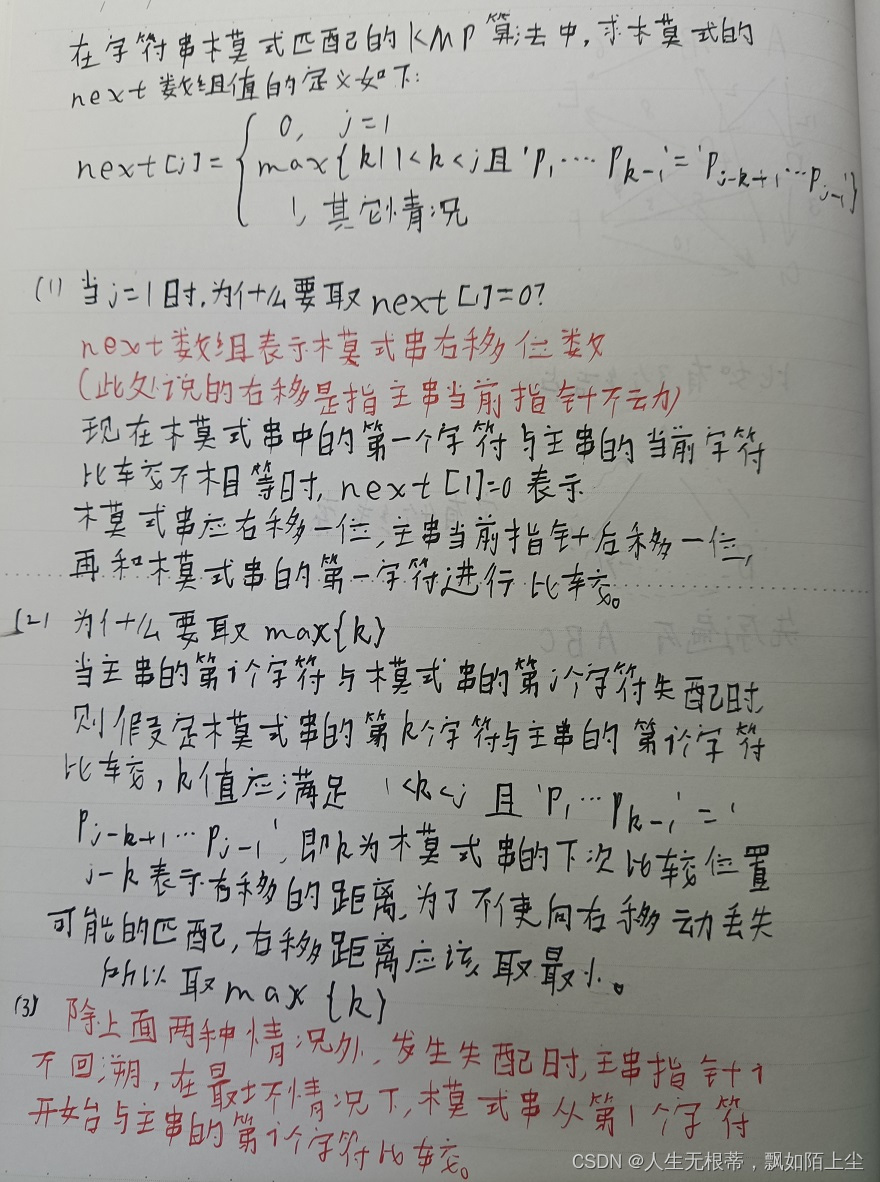 在字符串模式匹配的KMP算法中,求模式的
next数组值的定义如下:
0, j=1
next[j]= max{k|1<k<j且'p₁…pₖ₋₁'='pⱼ₋ₖ₊₁…pⱼ₋₁'}
1, 其它情况
(1) 当j=1时,为什么要取next[1]=0?
next数组表示模式串右移位数
(此处说的右移是指主串当前指针不动)
现在模式串中的第一个字符与主串的当前字符
比较不相等时, next[1]=0表示
模式串应右移一位,主串当前指针后移一位,
再和模式串的第一字符进行比较。
(2) 为什么要取max{k}
当主串的第i个字符与模式串的第j个字符失配时,
则假定模式串的第k个字符与主串的第i个字符
比较,k值应满足 1<k<j且'p₁…pₖ₋₁'='
pⱼ₋ₖ₊₁…pⱼ₋₁',即k为模式串的下次比较位置
j-k表示右移的距离,为了不使向右移动丢失
可能的匹配,右移距离应该取最小。
所以取max{k}
(3) 除上面两种情况外,发生失配时,主串指针i
不回溯,在最坏情况下,模式串从第1个字符
开始与主串的第i个字符比较。
CSDN @人生无根蒂,飘如陌上尘